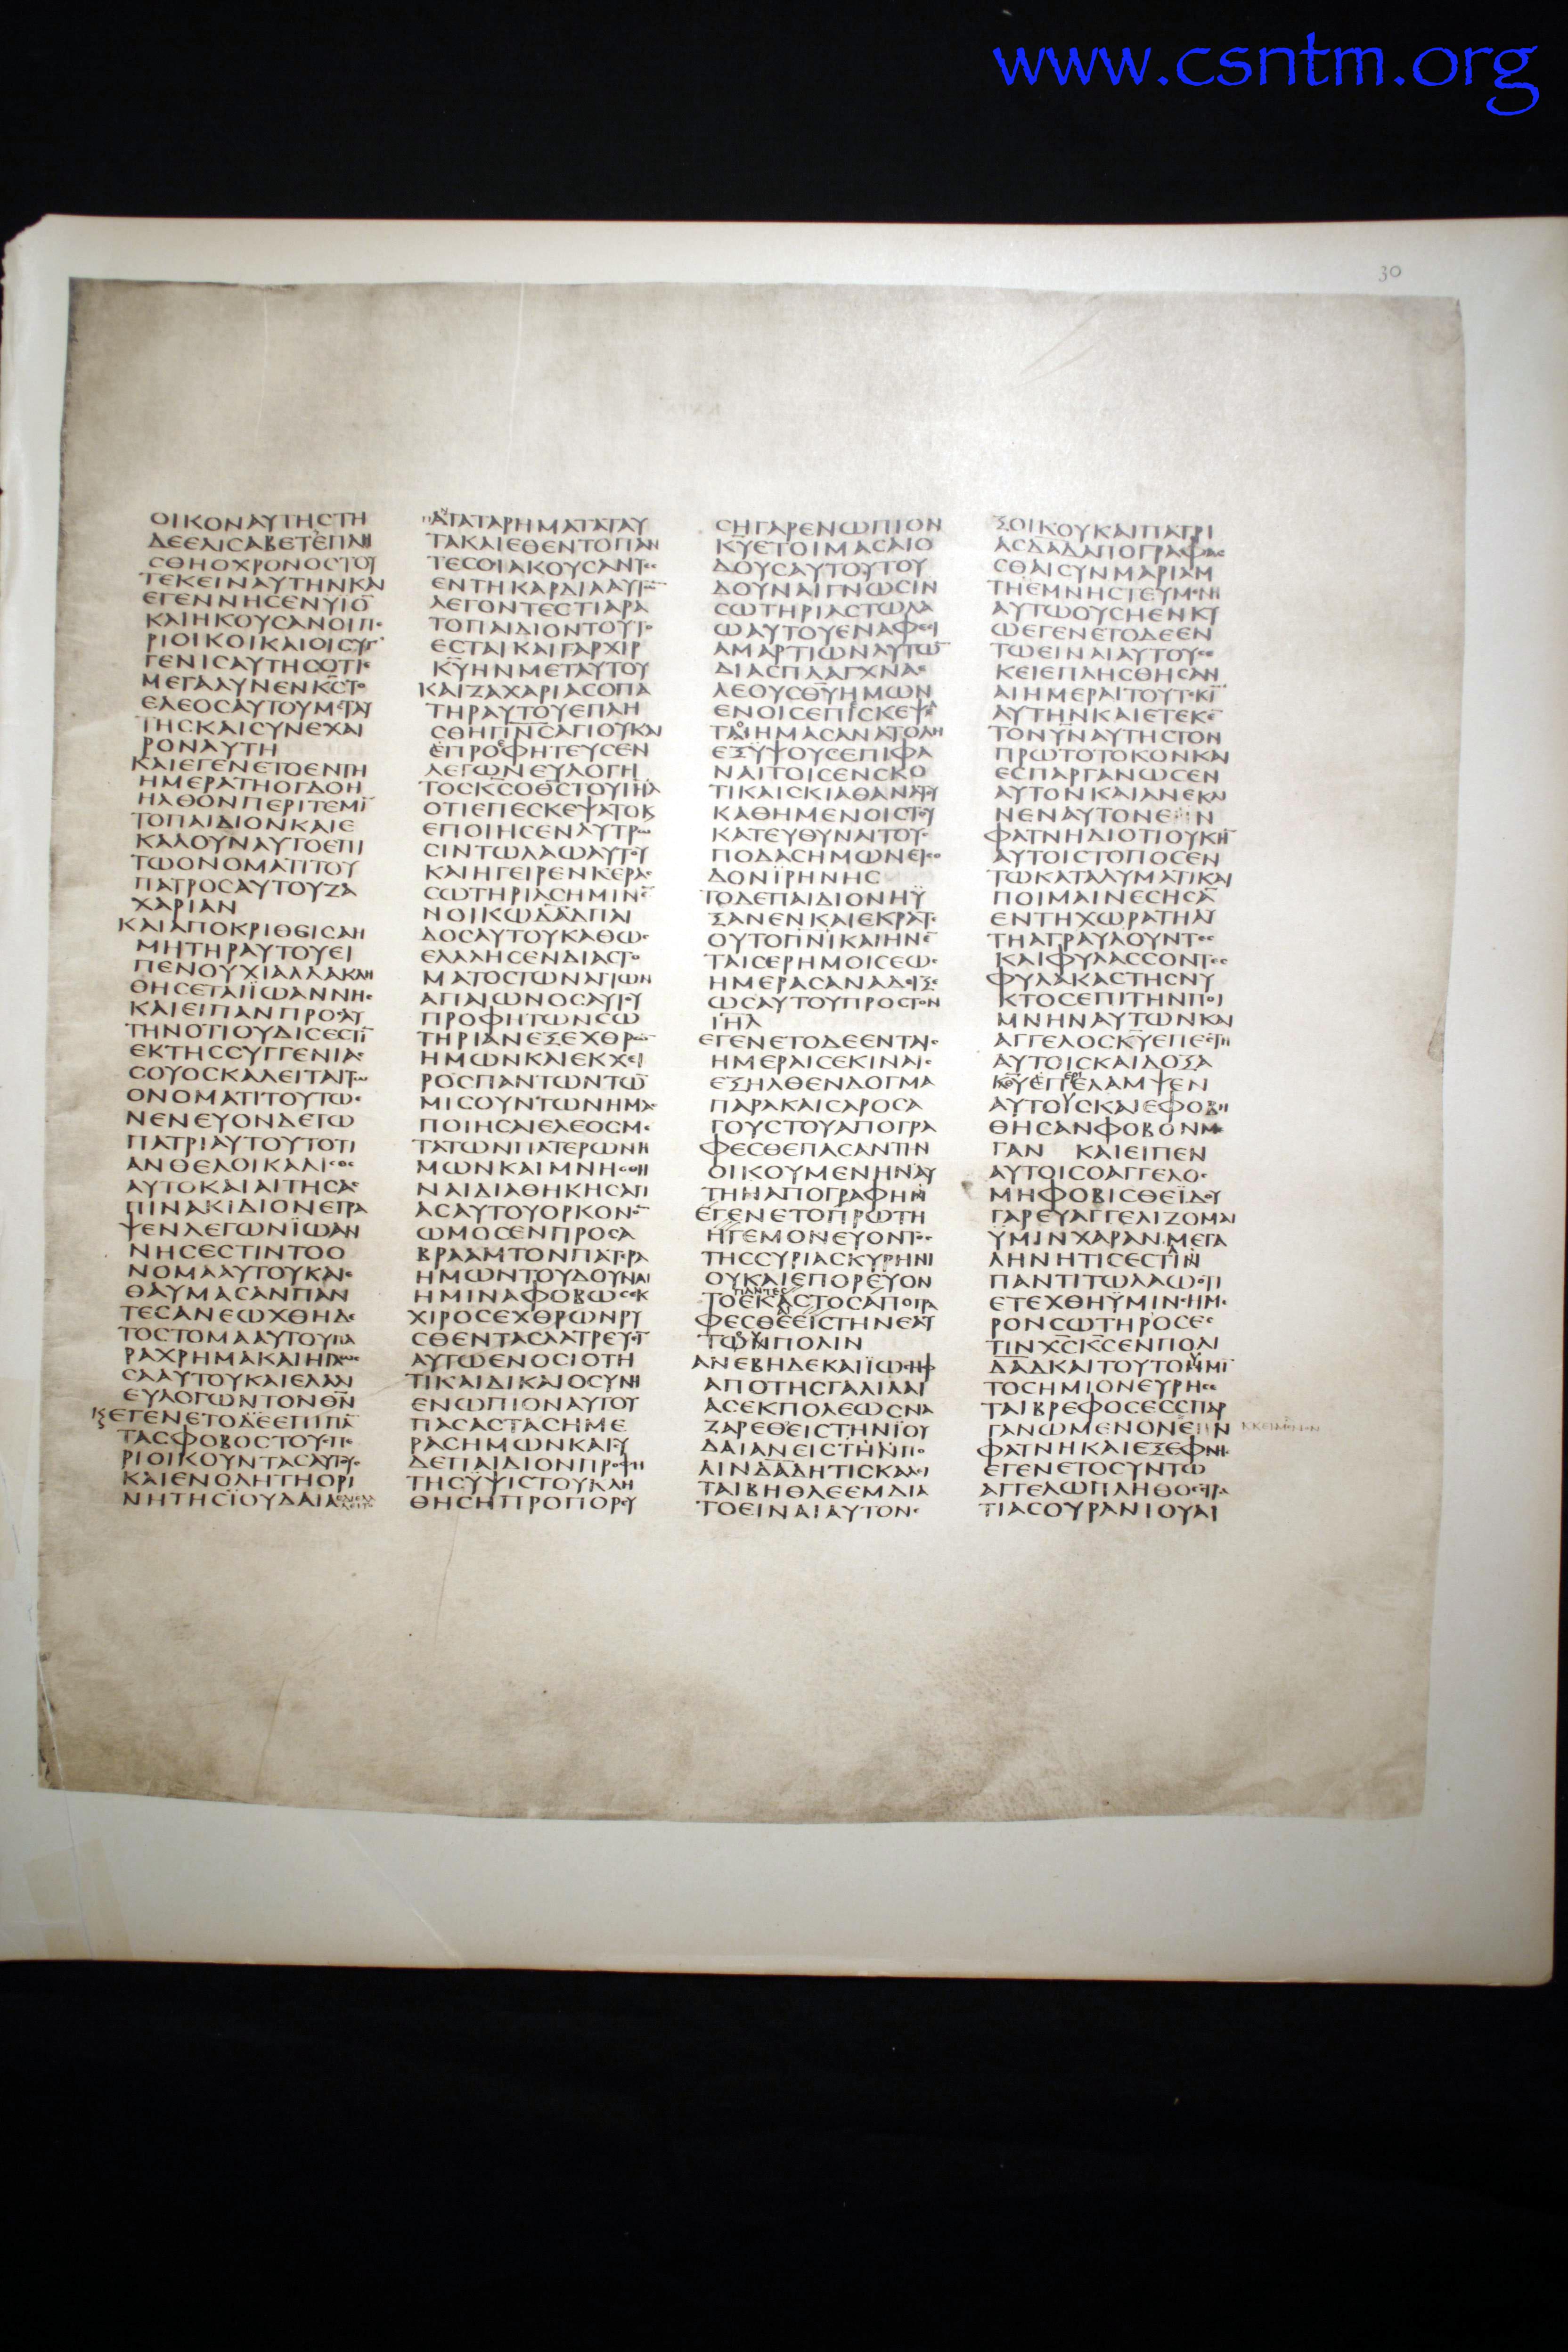 www.csntm.org
30
ΟΙΚΟΝΑΥΤΗΣΤΗ
ΔΕΕΛΙΣΑΒΕΤΕΠΛΗ
ΣΘΗΟΧΡΟΝΟΣΤΟΥ
ΤΕΚΕΙΝΑΥΤΗΝΚΑΙ
ΕΓΕΝΝΗΣΕΝΥΙΟ̅
ΚΑΙΗΚΟΥΣΑΝΟΙΠΕ
ΡΙΟΙΚΟΙΚΑΙΟΙΣΥΓ
ΓΕΝΙΣΑΥΤΗΣΟΤΙΕ
ΜΕΓΑΛΥΝΕΝΚ̅Σ̅ΤΟ
ΕΛΕΟΣΑΥΤΟΥΜΕΤΑΥ
ΤΗΣΚΑΙΣΥΝΕΧΑΙ
ΡΟΝΑΥΤΗ
ΚΑΙΕΓΕΝΕΤΟΕΝΤΗ
ΗΜΕΡΑΤΗΟΓΔΟΗ
ΗΛΘΟΝΠΕΡΙΤΕΜΙ̅
ΤΟΠΑΙΔΙΟΝΚΑΙΕ
ΚΑΛΟΥΝΑΥΤΟΕΠΙ
ΤΩΟΝΟΜΑΤΙΤΟΥ
ΠΑΤΡΟΣΑΥΤΟΥΖΑ
ΧΑΡΙΑΝ
ΚΑΙΑΠΟΚΡΙΘΕΙΣΑΗ
ΜΗΤΗΡΑΥΤΟΥΕΙ
ΠΕΝΟΥΧΙΑΛΛΑΚΛΗ
ΘΗΣΕΤΑΙΪΩΑΝΝΗΣ
ΚΑΙΕΙΠΑΝΠΡΟΣΑΥ
ΤΗΝΟΤΙΟΥΔΙΣΕΣΤΙ̅
ΕΚΤΗΣΣΥΓΓΕΝΙΑΣ
ΣΟΥΟΣΚΑΛΕΙΤΑΙΤΩ
ΟΝΟΜΑΤΙΤΟΥΤΩ
ΝΕΝΕΥΟΝΔΕΤΩ
ΠΑΤΡΙΑΥΤΟΥΤΟΤΙ
ΑΝΘΕΛΟΙΚΑΛΙΣΘΕ
ΑΥΤΟΚΑΙΑΙΤΗΣΑΣ
ΠΙΝΑΚΙΔΙΟΝΕΓΡΑ
ΨΕΝΛΕΓΩΝΪΩΑΝ
ΝΗΣΕΣΤΙΝΤΟΟ
ΝΟΜΑΑΥΤΟΥΚΑΙΕ
ΘΑΥΜΑΣΑΝΠΑΝ
ΤΕΣΑΝΕΩΧΘΗΔΕ
ΤΟΣΤΟΜΑΑΥΤΟΥΠΑ
ΡΑΧΡΗΜΑΚΑΙΗΓΛΩΣ
ΣΑΑΥΤΟΥΚΑΙΕΛΑΛΙ
ΕΥΛΟΓΩΝΤΟΝΘ̅Ν̅
ΕΓΕΝΕΤΟΔΕΕΠΙΠΑ̅
ΤΑΣΦΟΒΟΣΤΟΥΣΠΕ
ΡΙΟΙΚΟΥΝΤΑΣΑΥΤΟΥΣ
ΚΑΙΕΝΟΛΗΤΗΟΡΙ
ΝΗΤΗΣΪΟΥΔΑΙΑΣ
ΤΑΤΑΡΗΜΑΤΑΤΑΥ
ΤΑΚΑΙΕΘΕΝΤΟΠΑΝ
ΤΕΣΟΙΑΚΟΥΣΑΝΤΕΣ
ΕΝΤΗΚΑΡΔΙΑΑΥΤΩ̅
ΛΕΓΟΝΤΕΣΤΙΑΡΑ
ΤΟΠΑΙΔΙΟΝΤΟΥΤΟ
ΕΣΤΑΙΚΑΙΓΑΡΧΙΡ
Κ̅Υ̅ΗΝΜΕΤΑΥΤΟΥ
ΚΑΙΖΑΧΑΡΙΑΣΟΠΑ
ΤΗΡΑΥΤΟΥΕΠΛΗ
ΣΘΗΠ̅Ν̅Σ̅ΑΓΙΟΥΚΑΙ
ΕΠΡΟΦΗΤΕΥΣΕΝ
ΛΕΓΩΝΕΥΛΟΓΗ
ΤΟΣΚ̅Σ̅ΟΘ̅Σ̅ΤΟΥΙ̅Η̅Λ̅
ΟΤΙΕΠΕΣΚΕΨΑΤΟΚ
ΕΠΟΙΗΣΕΝΛΥΤΡΩ
ΣΙΝΤΩΛΑΩΑΥΤΟΥ
ΚΑΙΗΓΕΙΡΕΝΚΕΡΑΣ
ΣΩΤΗΡΙΑΣΗΜΙΝΕ̅
ΝΟΙΚΩΔ̅Α̅Δ̅ΠΑΙ
ΔΟΣΑΥΤΟΥΚΑΘΩΣ
ΕΛΑΛΗΣΕΝΔΙΑΣΤΟ
ΜΑΤΟΣΤΩΝΑΓΙΩΝ
ΑΠΑΙΩΝΟΣΑΥΤΟΥ
ΠΡΟΦΗΤΩΝΣΩ
ΤΗΡΙΑΝΕΞΕΧΘΡΩ̅
ΗΜΩΝΚΑΙΕΚΧΕΙ
ΡΟΣΠΑΝΤΩΝΤΩ̅
ΜΙΣΟΥΝΤΩΝΗΜΑΣ
ΠΟΙΗΣΑΙΕΛΕΟΣΜΕ
ΤΑΤΩΝΠΑΤΕΡΩΝΗ
ΜΩΝΚΑΙΜΝΗΣΘΗ
ΝΑΙΔΙΑΘΗΚΗΣΑΓΙ
ΑΣΑΥΤΟΥΟΡΚΟΝΟ̅
ΩΜΟΣΕΝΠΡΟΣΑ
ΒΡΑΑΜΤΟΝΠΑΤΕΡΑ
ΗΜΩΝΤΟΥΔΟΥΝΑΙ
ΗΜΙΝΑΦΟΒΩΣΕΚ
ΧΙΡΟΣΕΧΘΡΩΝΡΥ
ΣΘΕΝΤΑΣΛΑΤΡΕΥΕΙ̅
ΑΥΤΩΕΝΟΣΙΟΤΗ
ΤΙΚΑΙΔΙΚΑΙΟΣΥΝΗ
ΕΝΩΠΙΟΝΑΥΤΟΥ
ΠΑΣΑΣΤΑΣΗΜΕ
ΡΑΣΗΜΩΝΚΑΙΣΥ
ΔΕΠΑΙΔΙΟΝΠΡΟΦΗ
ΤΗΣΥΨΙΣΤΟΥΚΛΗ
ΘΗΣΗΠΡΟΠΟΡΕΥ
ΣΗΓΑΡΕΝΩΠΙΟΝ
Κ̅Υ̅ΕΤΟΙΜΑΣΑΙΟ
ΔΟΥΣΑΥΤΟΥΤΟΥ
ΔΟΥΝΑΙΓΝΩΣΙΝ
ΣΩΤΗΡΙΑΣΤΩΛΑ
ΩΑΥΤΟΥΕΝΑΦΕΣΙ
ΑΜΑΡΤΙΩΝΑΥΤΩ̅
ΔΙΑΣΠΛΑΓΧΝΑΕ
ΛΕΟΥΣΘ̅Υ̅ΗΜΩΝ
ΕΝΟΙΣΕΠΙΣΚΕΨΕ
ΤΑΙΗΜΑΣΑΝΑΤΟΛΗ
ΕΞΥΨΟΥΣΕΠΙΦΑ
ΝΑΙΤΟΙΣΕΝΣΚΟ
ΤΙΚΑΙΣΚΙΑΘΑΝΑΤΟΥ
ΚΑΘΗΜΕΝΟΙΣΤΟΥ
ΚΑΤΕΥΘΥΝΑΙΤΟΥΣ
ΠΟΔΑΣΗΜΩΝΕΙΣΟ
ΔΟΝΪΡΗΝΗΣ
ΤΟΔΕΠΑΙΔΙΟΝΗΥ
ΞΑΝΕΝΚΑΙΕΚΡΑΤΑΙ
ΟΥΤΟΠ̅Ν̅Ι̅ΚΑΙΗΝΕ̅
ΤΑΙΣΕΡΗΜΟΙΣΕΩΣ
ΗΜΕΡΑΣΑΝΑΔΙΞΕ
ΩΣΑΥΤΟΥΠΡΟΣΤΟΝ
Ι̅Η̅Λ̅
ΕΓΕΝΕΤΟΔΕΕΝΤΑΙΣ
ΗΜΕΡΑΙΣΕΚΙΝΑΙΣ
ΕΞΗΛΘΕΝΔΟΓΜΑ
ΠΑΡΑΚΑΙΣΑΡΟΣΑ
ΓΟΥΣΤΟΥΑΠΟΓΡΑ
ΦΕΣΘΕΠΑΣΑΝΤΗΝ
ΟΙΚΟΥΜΕΝΗΝΑΥ
ΤΗΝΑΠΟΓΡΑΦΗΝ
ΕΓΕΝΕΤΟΠΡΩΤΗ
ΗΓΕΜΟΝΕΥΟΝΤΟΣ
ΤΗΣΣΥΡΙΑΣΚΥΡΗΝΙ
ΟΥΚΑΙΕΠΟΡΕΥΟΝ
ΠΑΝΤΕΣ
ΤΟΕΚΑΣΤΟΣΑΠΟΓΡΑ
ΦΕΣΘΕΕΙΣΤΗΝΕΑΥ
ΤΩΝΠΟΛΙΝ
ΑΝΕΒΗΔΕΚΑΙΪΩΣΗΦ
ΑΠΟΤΗΣΓΑΛΙΛΑΙ
ΑΣΕΚΠΟΛΕΩΣΝΑ
ΖΑΡΕΘΕΙΣΤΗΝΪΟΥ
ΔΑΙΑΝΕΙΣΤΗΝΠΟ
ΛΙΝΔ̅Α̅Δ̅ΗΤΙΣΚΑΛΕΙ
ΤΑΙΒΗΘΛΕΕΜΔΙΑ
ΤΟΕΙΝΑΙΑΥΤΟΝΕ
ΞΟΙΚΟΥΚΑΙΠΑΤΡΙ
ΑΣΔ̅Α̅Δ̅ΑΠΟΓΡΑΦΕ
ΣΘΑΙΣΥΝΜΑΡΙΑΜ
ΤΗΕΜΝΗΣΤΕΥΜΕΝΗ
ΑΥΤΩΟΥΣΗΕΝΚΥ
ΩΕΓΕΝΕΤΟΔΕΕΝ
ΤΩΕΙΝΑΙΑΥΤΟΥΣΕ
ΚΕΙΕΠΛΗΣΘΗΣΑΝ
ΑΙΗΜΕΡΑΙΤΟΥΤΕΚΙ̅
ΑΥΤΗΝΚΑΙΕΤΕΚΕ̅
ΤΟΝΥ̅Ν̅ΑΥΤΗΣΤΟΝ
ΠΡΩΤΟΤΟΚΟΝΚΑΙ
ΕΣΠΑΡΓΑΝΩΣΕΝ
ΑΥΤΟΝΚΑΙΑΝΕΚΛΙ
ΝΕΝΑΥΤΟΝΕΝ
ΦΑΤΝΗΔΙΟΤΙΟΥΚΗ̅
ΑΥΤΟΙΣΤΟΠΟΣΕΝ
ΤΩΚΑΤΑΛΥΜΑΤΙΚΑΙ
ΠΟΙΜΑΙΝΕΣΗΣΑ̅
ΕΝΤΗΧΩΡΑΤΗΑΥ
ΤΗΑΓΡΑΥΛΟΥΝΤΕΣ
ΚΑΙΦΥΛΑΣΣΟΝΤΕΣ
ΦΥΛΑΚΑΣΤΗΣΝΥ
ΚΤΟΣΕΠΙΤΗΝΠΟΙ
ΜΝΗΝΑΥΤΩΝΚΑΙ
ΑΓΓΕΛΟΣΚ̅Υ̅ΕΠΕΣΤΗ
ΑΥΤΟΙΣΚΑΙΔΟΞΑ
Κ̅Υ̅ΕΠΕΛΑΜΨΕΝ
ΑΥΤΟΥΣΚΑΙΕΦΟΒΗ
ΘΗΣΑΝΦΟΒΟΝΜΕ
ΓΑΝ ΚΑΙΕΙΠΕΝ
ΑΥΤΟΙΣΟΑΓΓΕΛΟΣ
ΜΗΦΟΒΙΣΘΕΪΔΟΥ
ΓΑΡΕΥΑΓΓΕΛΙΖΟΜΑΙ
ΥΜΙΝΧΑΡΑΝΜΕΓΑ
ΛΗΝΗΤΙΣΕΣΤΙΝ
ΠΑΝΤΙΤΩΛΑΩΟΤΙ
ΕΤΕΧΘΗΥΜΙΝΣΗΜΕ
ΡΟΝΣΩΤΗΡΟΣΕΣ
ΤΙΝΧ̅Σ̅Κ̅Σ̅ΕΝΠΟΛΙ
Δ̅Α̅Δ̅ΚΑΙΤΟΥΤΟΥΜΙ̅
ΤΟΣΗΜΙΟΝΕΥΡΗΣΕ
ΤΑΙΒΡΕΦΟΣΕΣΣΠΑΡ
ΓΑΝΩΜΕΝΟΝΕΝ
ΦΑΤΝΗΚΑΙΕΞΕΦΝΗΣ
ΕΓΕΝΕΤΟΣΥΝΤΩ
ΑΓΓΕΛΩΠΛΗΘΟΣΣΤΡΑ
ΤΙΑΣΟΥΡΑΝΙΟΥΑΙ